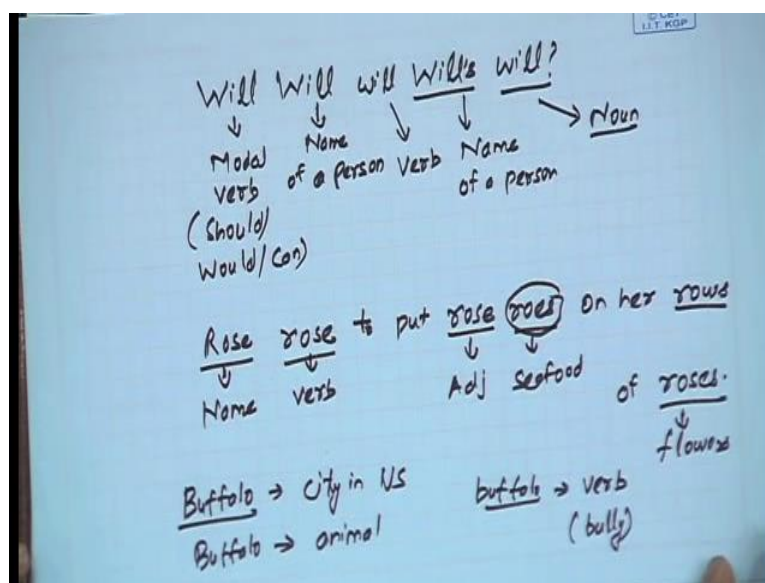 © CET
I.I.T. KGP
Will Will will Will's will?
Modal verb (Should/ Would/Can)
Name of a person
Verb
Name of a person
Noun
Rose rose to put rose roes on her rows
Name
verb
Adj
Seafood
of roses.
flowers
Buffalo → city in US
buffalo → verb
Buffalo → animal
(bully)